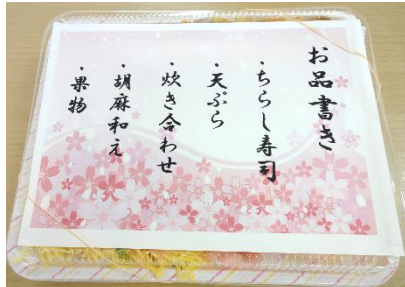 お品書き
・ちらし寿司
・天ぷら
・炊き合わせ
・胡麻和え
・果物